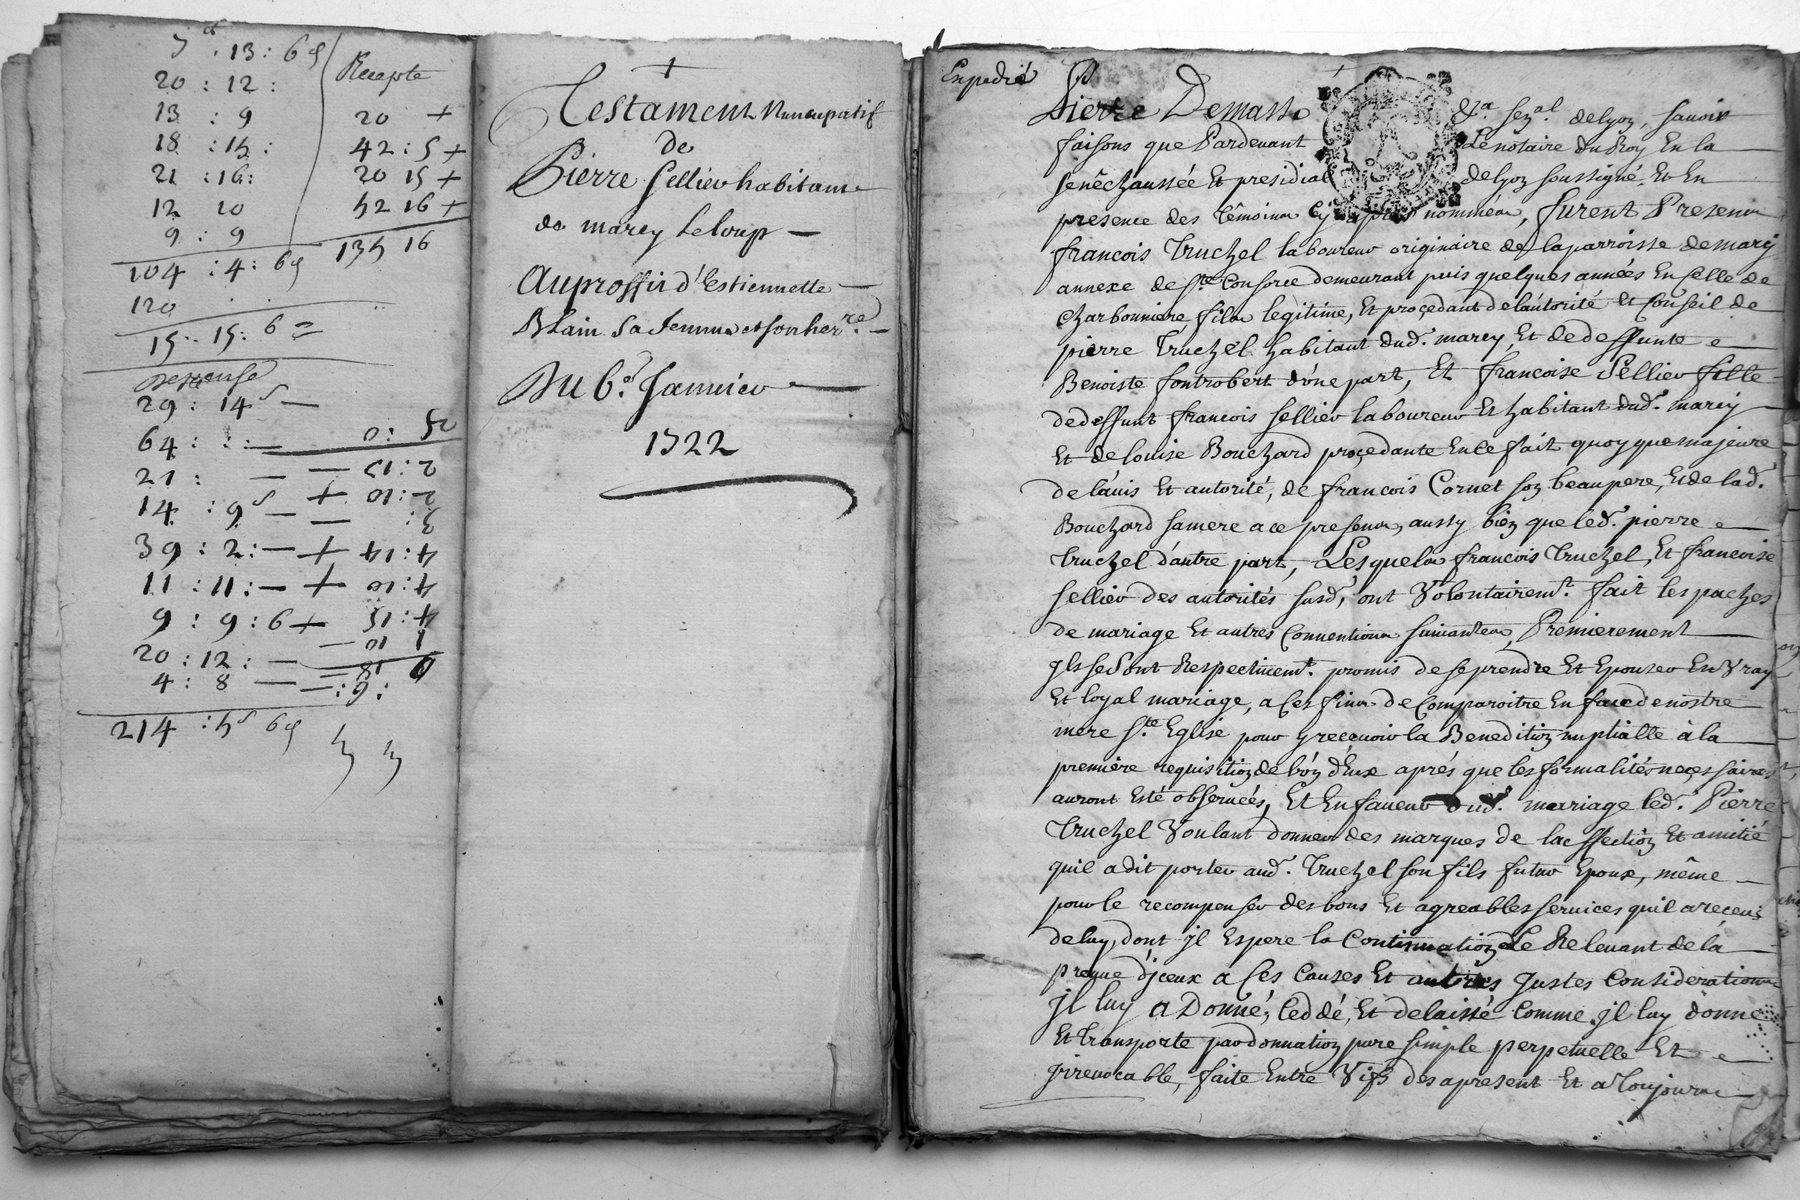 7 . 13 : 6 d
20 : 12 :
13 : 9
18 : 15 :
21 : 16 :
12 10
9 : 9
104 : 4 : 6 d
120
15 : 15 : 6
Recepte
20 +
42 : 5 +
20 15 +
52 16 +
135 16
despense
29 : 14 s
64 : :
21 :
14 : 9 s
39 : 2 :
11 : 11 :
9 : 9 : 6
20 : 12 :
4 : 8
214 : 5 s 6 d
+
Testament Nuncupatif
de
Pierre Sellier habitant
de marcy Le loup
Auproffit d'Estiennette
Blain sa femme et son her.re
Du 6.e Janvier
1722
Expedié
Pierre Demasso &.a sen.al de lyon, savoir
faisons que Pardevant Le notaire du Roy En la
senêchaussée Et presidial de lyon soussigné, Et En
presence des têmoins cy apres nommés, furent Presens
françois Truchel laboureur originaire de la parroisse de marcy
annexe de S.te Consorce demeurant puis quelques années En Celle de
Charbonniere fils legitime, Et proçedant de l'autorité Et Conseil de
pierre Truchel habitant dud. marcy, Et de deffunte
Benoiste fontrobert d'une part, Et françoise Sellier fille
de deffunt françois Sellier laboureur Et habitant dud. marcy
Et de louise Bouchard proçedante En ce fait quoy que majeure
de l'avis Et autorité, de françois Cornet son beaupere, Et de lad.
Bouchard sa mere a ce presens, aussy bien que led. pierre
Truchel d'autre part, Lesquels françois Truchel, Et françoise
Sellier des autorités susd. ont Volontairem.t fait les paches
de mariage Et autres Conventions suivantes, Premierement
Ils se sont Respectivem.t promis de se prendre Et Epouser En Vray
Et loyal mariage, a Ces fins de Comparoitre En face de nostre
mere S.te Eglise pour y reçevoir la Benedition nuptialle à la
premiere requisition de l'un d'Eux aprés que les formalités neçessaires
auront Esté observées, Et En faveur dud. mariage led. Pierre
Truchel Voulant donner des marques de l'affection Et amitié
quil a dit porter aud. Truchel son fils futur Epoux, même
pour le recompenser des bons Et agreables services quil a reçeus
de luy, dont jl Espere la Continuation Le Relevant de la
preuve d'jceux a Ces Causes Et autres Justes Considerations
jl luy a Donné, Ceddé, Et delaissé Comme jl luy donne
Et transporte par donnation pure simple perpetuelle Et
Jrrevocable, faite Entre Vifs des apresent Et a toujours